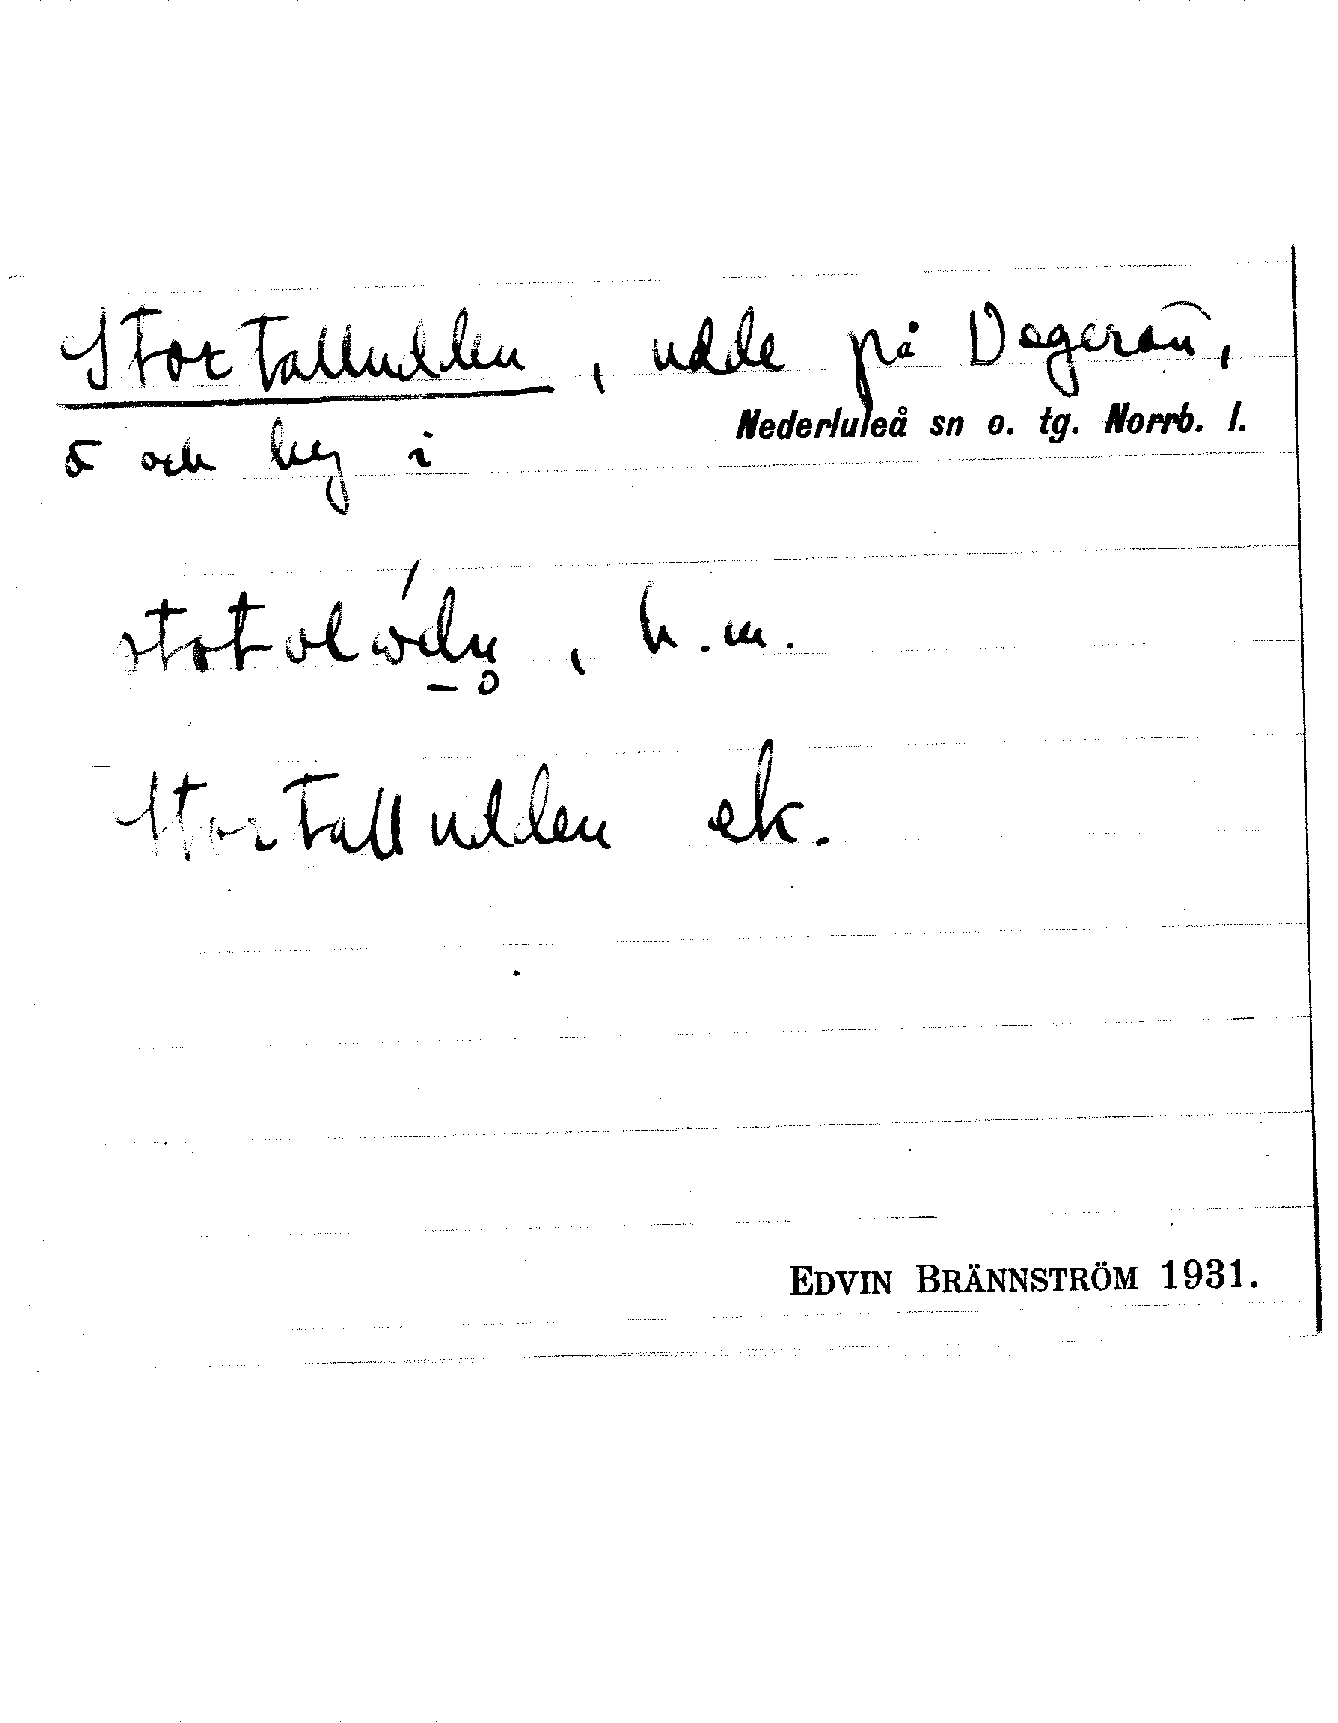 Stortalludden, udde på Degerön,
ö och hg i Nederluleå sn o. tg. Norrb. l.
h.m.
Stortalludden ek.
EDVIN BRÄNNSTRÖM 1931.